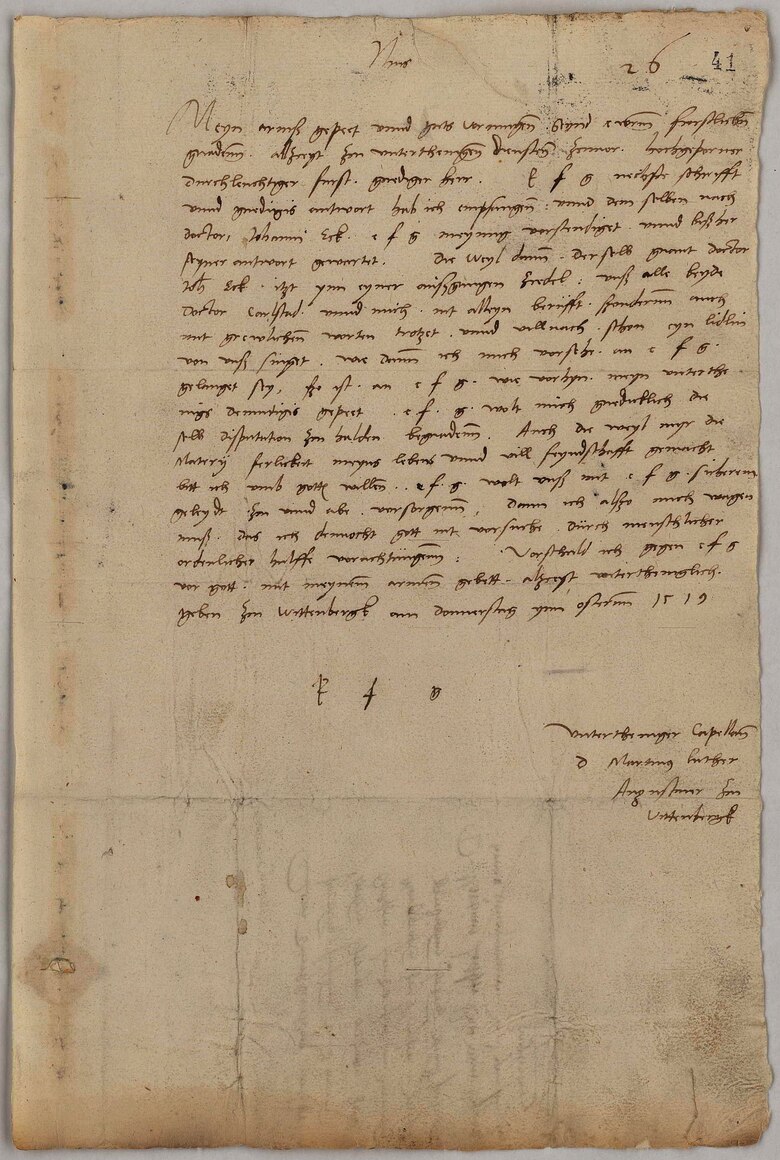 Ihus
26 41
Meyn armß gepeet unnd guts vormugen seynd ewrnn furstlichen
gnadenn altzeyt zu unterthenigenn diensten zuuor. Hochgeporner
durchleuchtiger furst. gnediger herr. E f g nechste schrifft
unnd gnedigis antwort hab ich empfangenn. unnd dem selben nach
doctor Johanni Eck. e f g meynung vorstendiget. unnd bißher
seyner antwort gewartet. Die weyl dann. der selb gnant doctor
Joh Eck. itzt ynn eyner außgangen zcedel: unß alle beyde
doctor Carlstad. unnd mich. nit alleyn berufft. sonderun auch
mit grewlichen worten trotzet. unnd villnach. schon eyn lidlin
von unß singet. wie dann ich mich vorsehe. an e f g.
gelanget sey. ßo ist. an e f g. wie vorhyn. meyn unterthe
nigs demutigis gepeet. e f. g. wolt mich gnediclich die
selb disputation zu halden begnadenn. Auch die weyl myr die
Matery ferlickeit meyns lebens unnd vill feyndschafft gemacht
bitt ich umb gottis willen. e f. g. wolt unß mit e f g sicherem
geleydt zu unnd abe. vorsorgenn. dann ich alßo mich wagen
muß. das ich dennocht gott nit vorsuche durch menschlicher
ordenlicher hulffe vorachtungenn: Vorschuld ich gegen e f g
vor gott. mit meynem armen gebett. altzeyt untertheniglich.
geben zu Wittenbergk am donnerstag ynn osternn 1519
E f g
untertheniger Capellan
D Martinus Luther
Augustiner zu
Vittenbergk